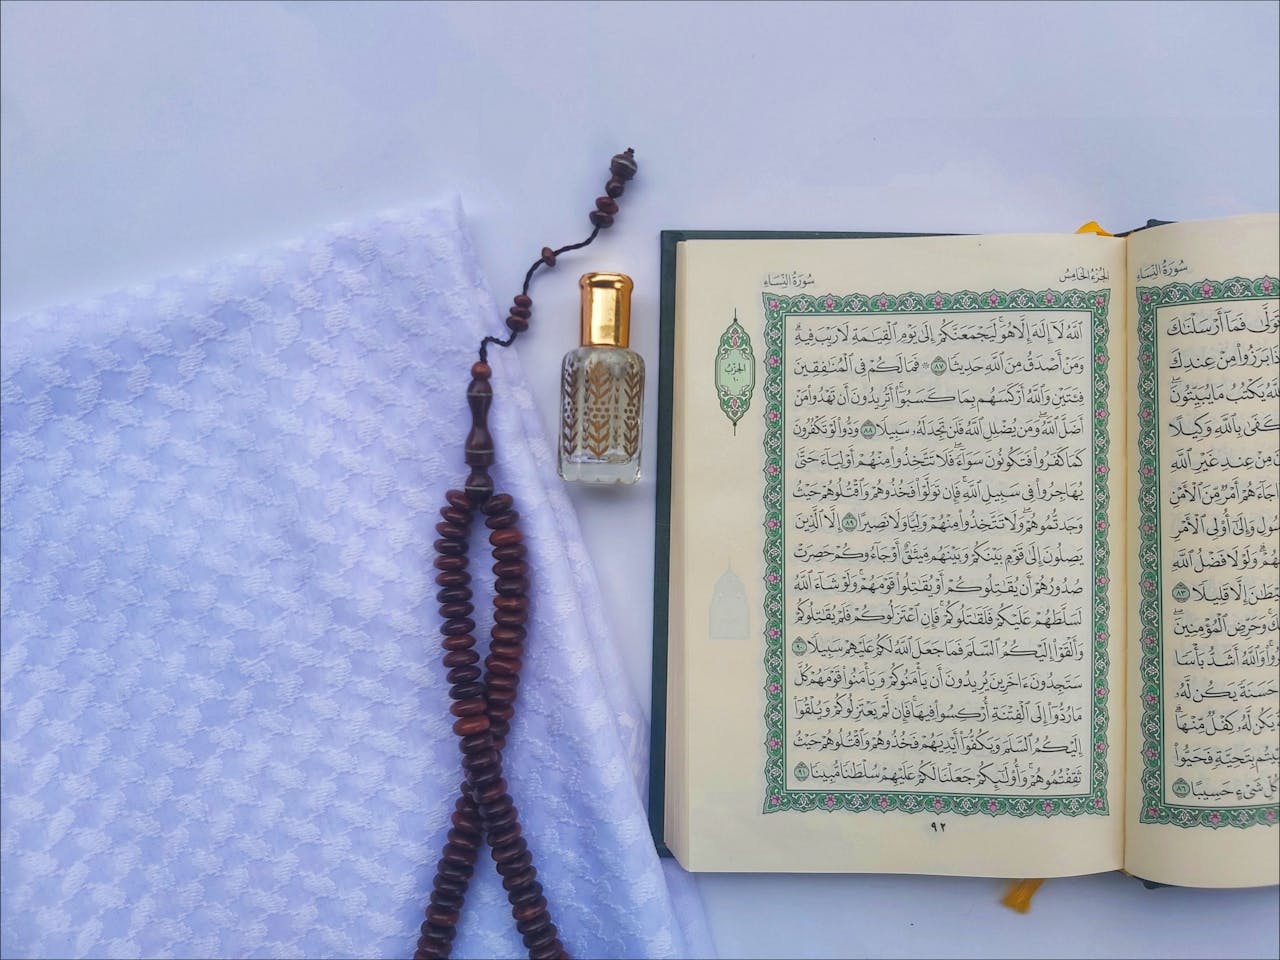 سُورَةُ النِّسَاءِ
تَوَلَّىٰ فَمَآ أَرْسَلْنَٰكَ
بَرَزُوا۟ مِنْ عِندِكَ
يَكْتُبُ مَا يُبَيِّتُونَ
كَفَىٰ بِٱللَّهِ وَكِيلًا
مِنْ عِندِ غَيْرِ ٱللَّهِ
جَآءَهُمْ أَمْرٌ مِّنَ ٱلْأَمْنِ
وَإِلَىٰٓ أُو۟لِى ٱلْأَمْرِ
وَلَوْلَا فَضْلُ ٱللَّهِ
إِلَّا قَلِيلًا ٨٣
وَحَرِّضِ ٱلْمُؤْمِنِينَ
وَٱللَّهُ أَشَدُّ بَأْسًا
حَسَنَةً يَكُن لَّهُۥ
يَكُن لَّهُۥ كِفْلٌ مِّنْهَا ۗ
بِتَحِيَّةٍ فَحَيُّوا۟
كُلِّ شَىْءٍ حَسِيبًا ٨٦
الجُزْءُ الخَامِسُ
سُورَةُ النِّسَاءِ
ٱللَّهُ لَآ إِلَٰهَ إِلَّا هُوَ ۚ لَيَجْمَعَنَّكُمْ إِلَىٰ يَوْمِ ٱلْقِيَٰمَةِ لَا رَيْبَ فِيهِ ۗ
وَمَنْ أَصْدَقُ مِنَ ٱللَّهِ حَدِيثًا ٨٧ ۞ فَمَا لَكُمْ فِى ٱلْمُنَٰفِقِينَ
فِئَتَيْنِ وَٱللَّهُ أَرْكَسَهُم بِمَا كَسَبُوٓا۟ ۚ أَتُرِيدُونَ أَن تَهْدُوا۟ مَنْ
أَضَلَّ ٱللَّهُ ۖ وَمَن يُضْلِلِ ٱللَّهُ فَلَن تَجِدَ لَهُۥ سَبِيلًا ٨٨ وَدُّوا۟ لَوْ تَكْفُرُونَ
كَمَا كَفَرُوا۟ فَتَكُونُونَ سَوَآءً ۖ فَلَا تَتَّخِذُوا۟ مِنْهُمْ أَوْلِيَآءَ حَتَّىٰ
يُهَاجِرُوا۟ فِى سَبِيلِ ٱللَّهِ ۚ فَإِن تَوَلَّوْا۟ فَخُذُوهُمْ وَٱقْتُلُوهُمْ حَيْثُ
وَجَدتُّمُوهُمْ ۖ وَلَا تَتَّخِذُوا۟ مِنْهُمْ وَلِيًّا وَلَا نَصِيرًا ٨٩ إِلَّا ٱلَّذِينَ
يَصِلُونَ إِلَىٰ قَوْمٍۭ بَيْنَكُمْ وَبَيْنَهُم مِّيثَٰقٌ أَوْ جَآءُوكُمْ حَصِرَتْ
صُدُورُهُمْ أَن يُقَٰتِلُوكُمْ أَوْ يُقَٰتِلُوا۟ قَوْمَهُمْ ۚ وَلَوْ شَآءَ ٱللَّهُ
لَسَلَّطَهُمْ عَلَيْكُمْ فَلَقَٰتَلُوكُمْ ۚ فَإِنِ ٱعْتَزَلُوكُمْ فَلَمْ يُقَٰتِلُوكُمْ
وَأَلْقَوْا۟ إِلَيْكُمُ ٱلسَّلَمَ فَمَا جَعَلَ ٱللَّهُ لَكُمْ عَلَيْهِمْ سَبِيلًا ٩٠
سَتَجِدُونَ ءَاخَرِينَ يُرِيدُونَ أَن يَأْمَنُوكُمْ وَيَأْمَنُوا۟ قَوْمَهُمْ كُلَّ
مَا رُدُّوٓا۟ إِلَى ٱلْفِتْنَةِ أُرْكِسُوا۟ فِيهَا ۚ فَإِن لَّمْ يَعْتَزِلُوكُمْ وَيُلْقُوٓا۟
إِلَيْكُمُ ٱلسَّلَمَ وَيَكُفُّوٓا۟ أَيْدِيَهُمْ فَخُذُوهُمْ وَٱقْتُلُوهُمْ حَيْثُ
ثَقِفْتُمُوهُمْ ۚ وَأُو۟لَٰٓئِكُمْ جَعَلْنَا لَكُمْ عَلَيْهِمْ سُلْطَٰنًا مُّبِينًا ٩١
الحِزْبُ
١٠
٩٢